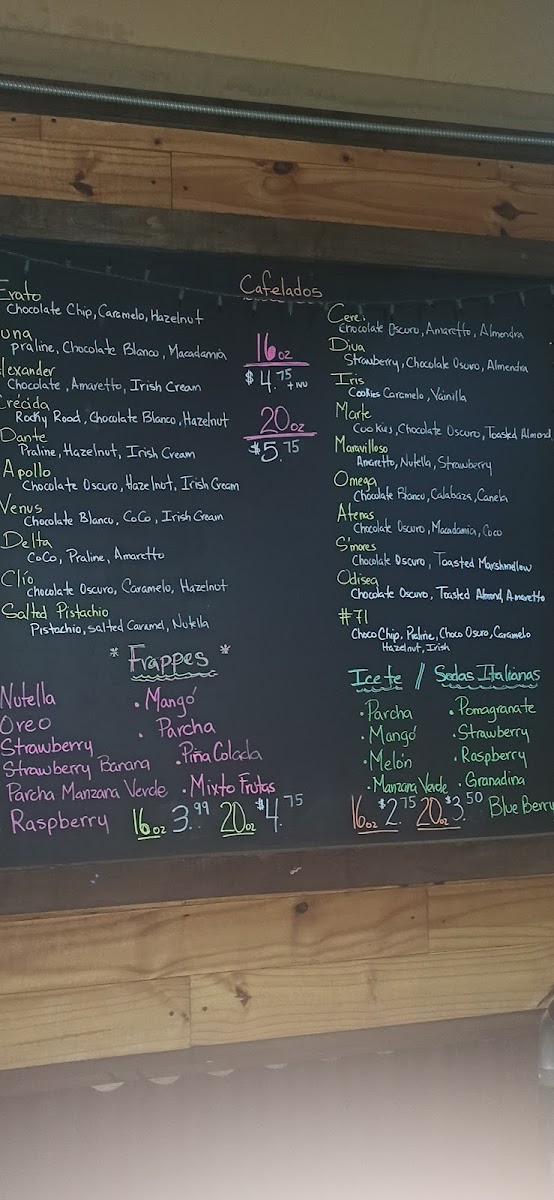 Cafelados
Erato
Chocolate Chip, Caramelo, Hazelnut
una
Praline, Chocolate Blanco, Macadamia
lexander
Chocolate, Amaretto, Irish Cream
Crécida
Rocky Road, Chocolate Blanco, Hazelnut
Dante
Praline, Hazelnut, Irish Cream
Apollo
Chocolate Oscuro, Hazelnut, Irish Cream
Venus
Chocolate Blanco, CoCo, Irish Cream
Delta
CoCo, Praline, Amaretto
Clío
Chocolate Oscuro, Caramelo, Hazelnut
Salted Pistachio
Pistachio, Salted Caramel, Nutella
16oz
$4.75
20oz
$5.75
Chocolate Oscuro, Amaretto, Almendra
Diva
Strawberry, Chocolate Osuro, Almendra
Iris
Cookies Caramelo, Vainilla
Marte
Cookies, Chocolate Oscuro, Toasted Almond
Maravilloso
Amaretto, Nutella, Strawberry
Omega
Chocolate Blanco, Calabaza, Canela
Atenas
Chocolate Oscuro, Macadamia, Coco
S'mores
Chocolate Oscuro, Toasted Marshmellow
Odisea
Chocolate Oscuro, Toasted Almond, Amaretto
#71
Choco Chip, Praline, Choco Osuro, Caramelo
Hazelnut, Irish
* Frappes *
Nutella
Oreo
Strawberry
Strawberry Banana
Parcha Manzana Verde
Raspberry
• Mangó
• Parcha
• Piña Colada
• Mixto Frutas
16oz 3.99 20oz $4.75
Ice te / Sodas Italianas
• Parcha
• Mangó
• Melón
• Manzana Verde
• Pomagranate
• Strawberry
• Raspberry
• Granadina
Blue Berry
16oz $2.75 20oz $3.50